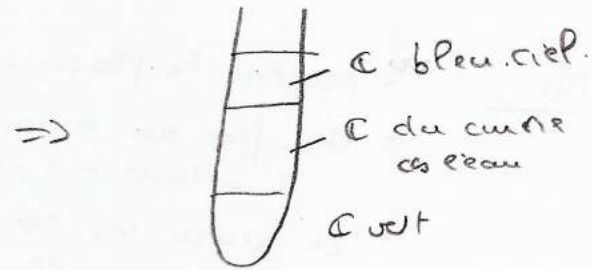 => C bleu. ciel.
C du cuivre
ds l'eau
C vert